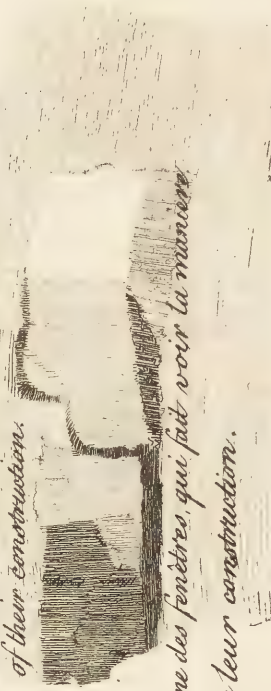 of their construction.
des fenêtres, qui fait voir la maniere
leur construction.